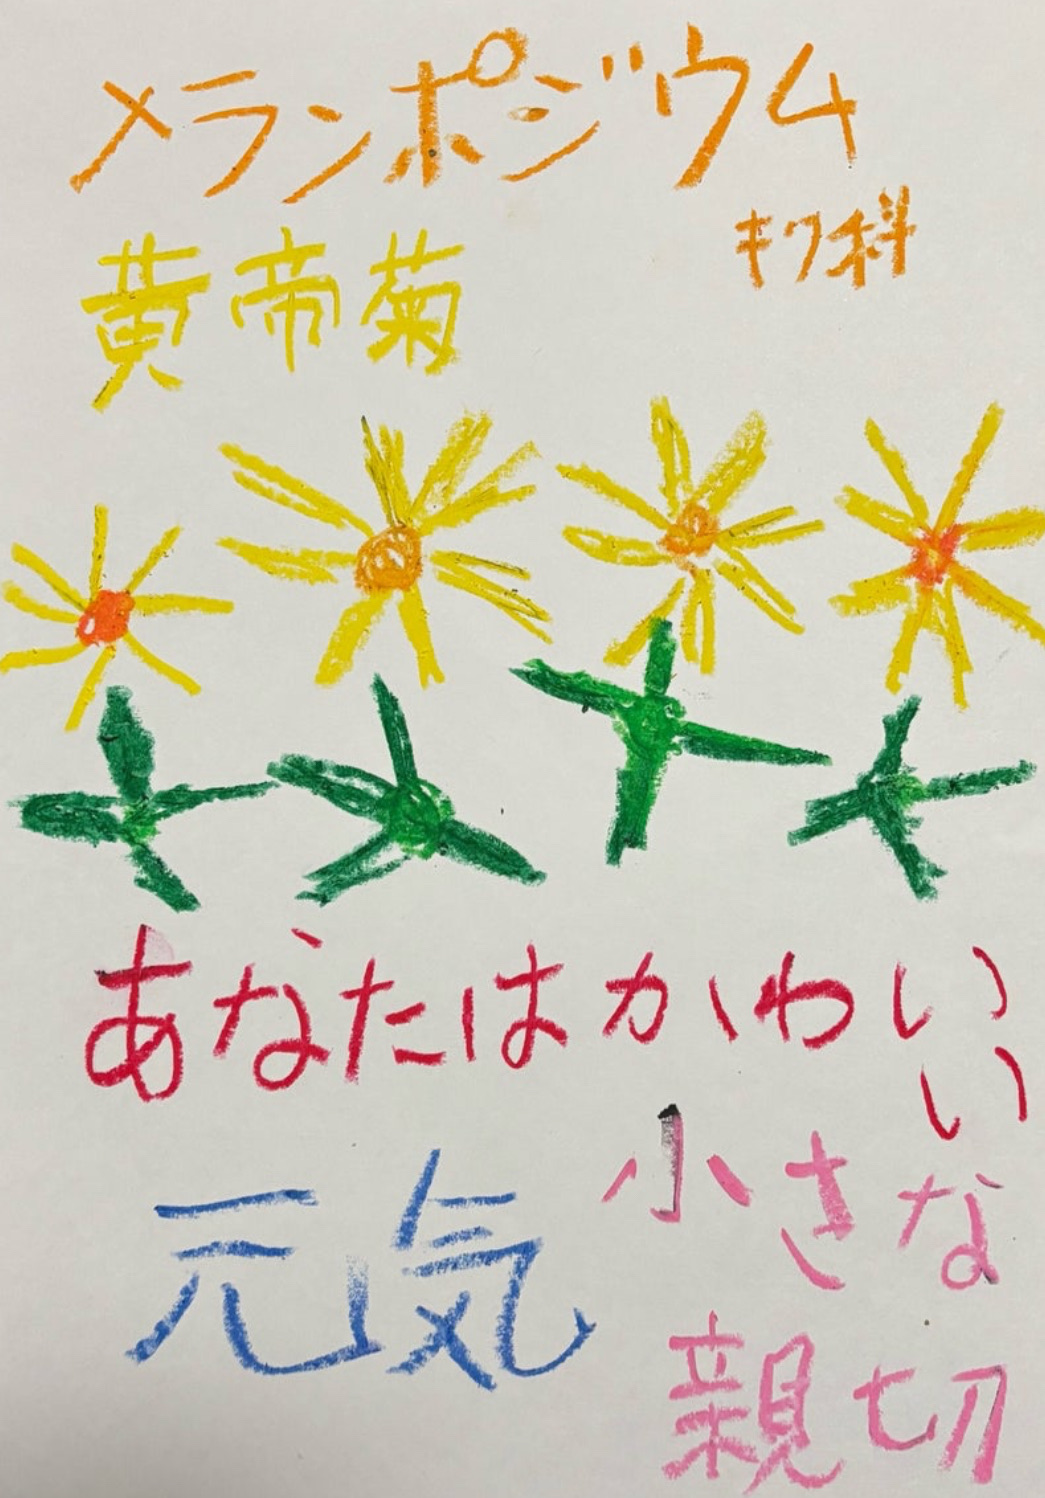 メランポジウム
キク科
黄帝菊
あなたはかわいい
元気
小さな
親切